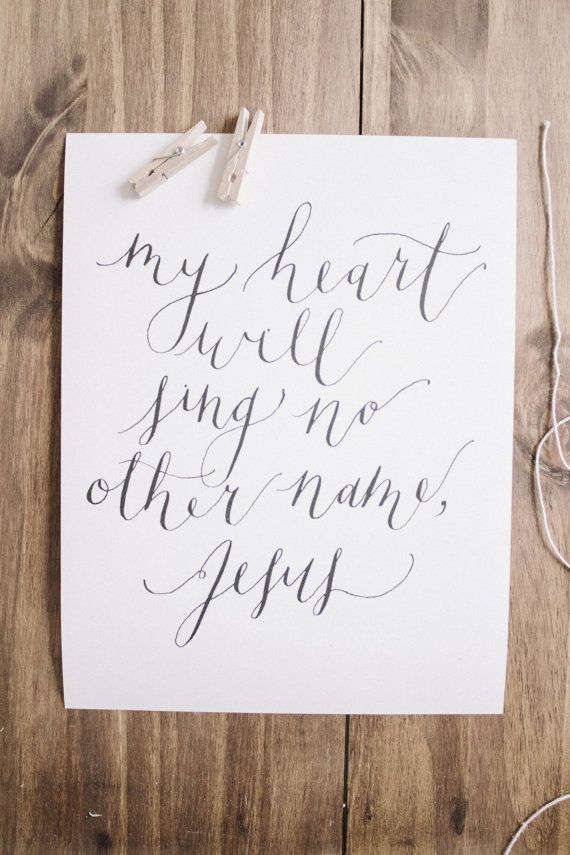 my heart
will
sing no
other name,
Jesus